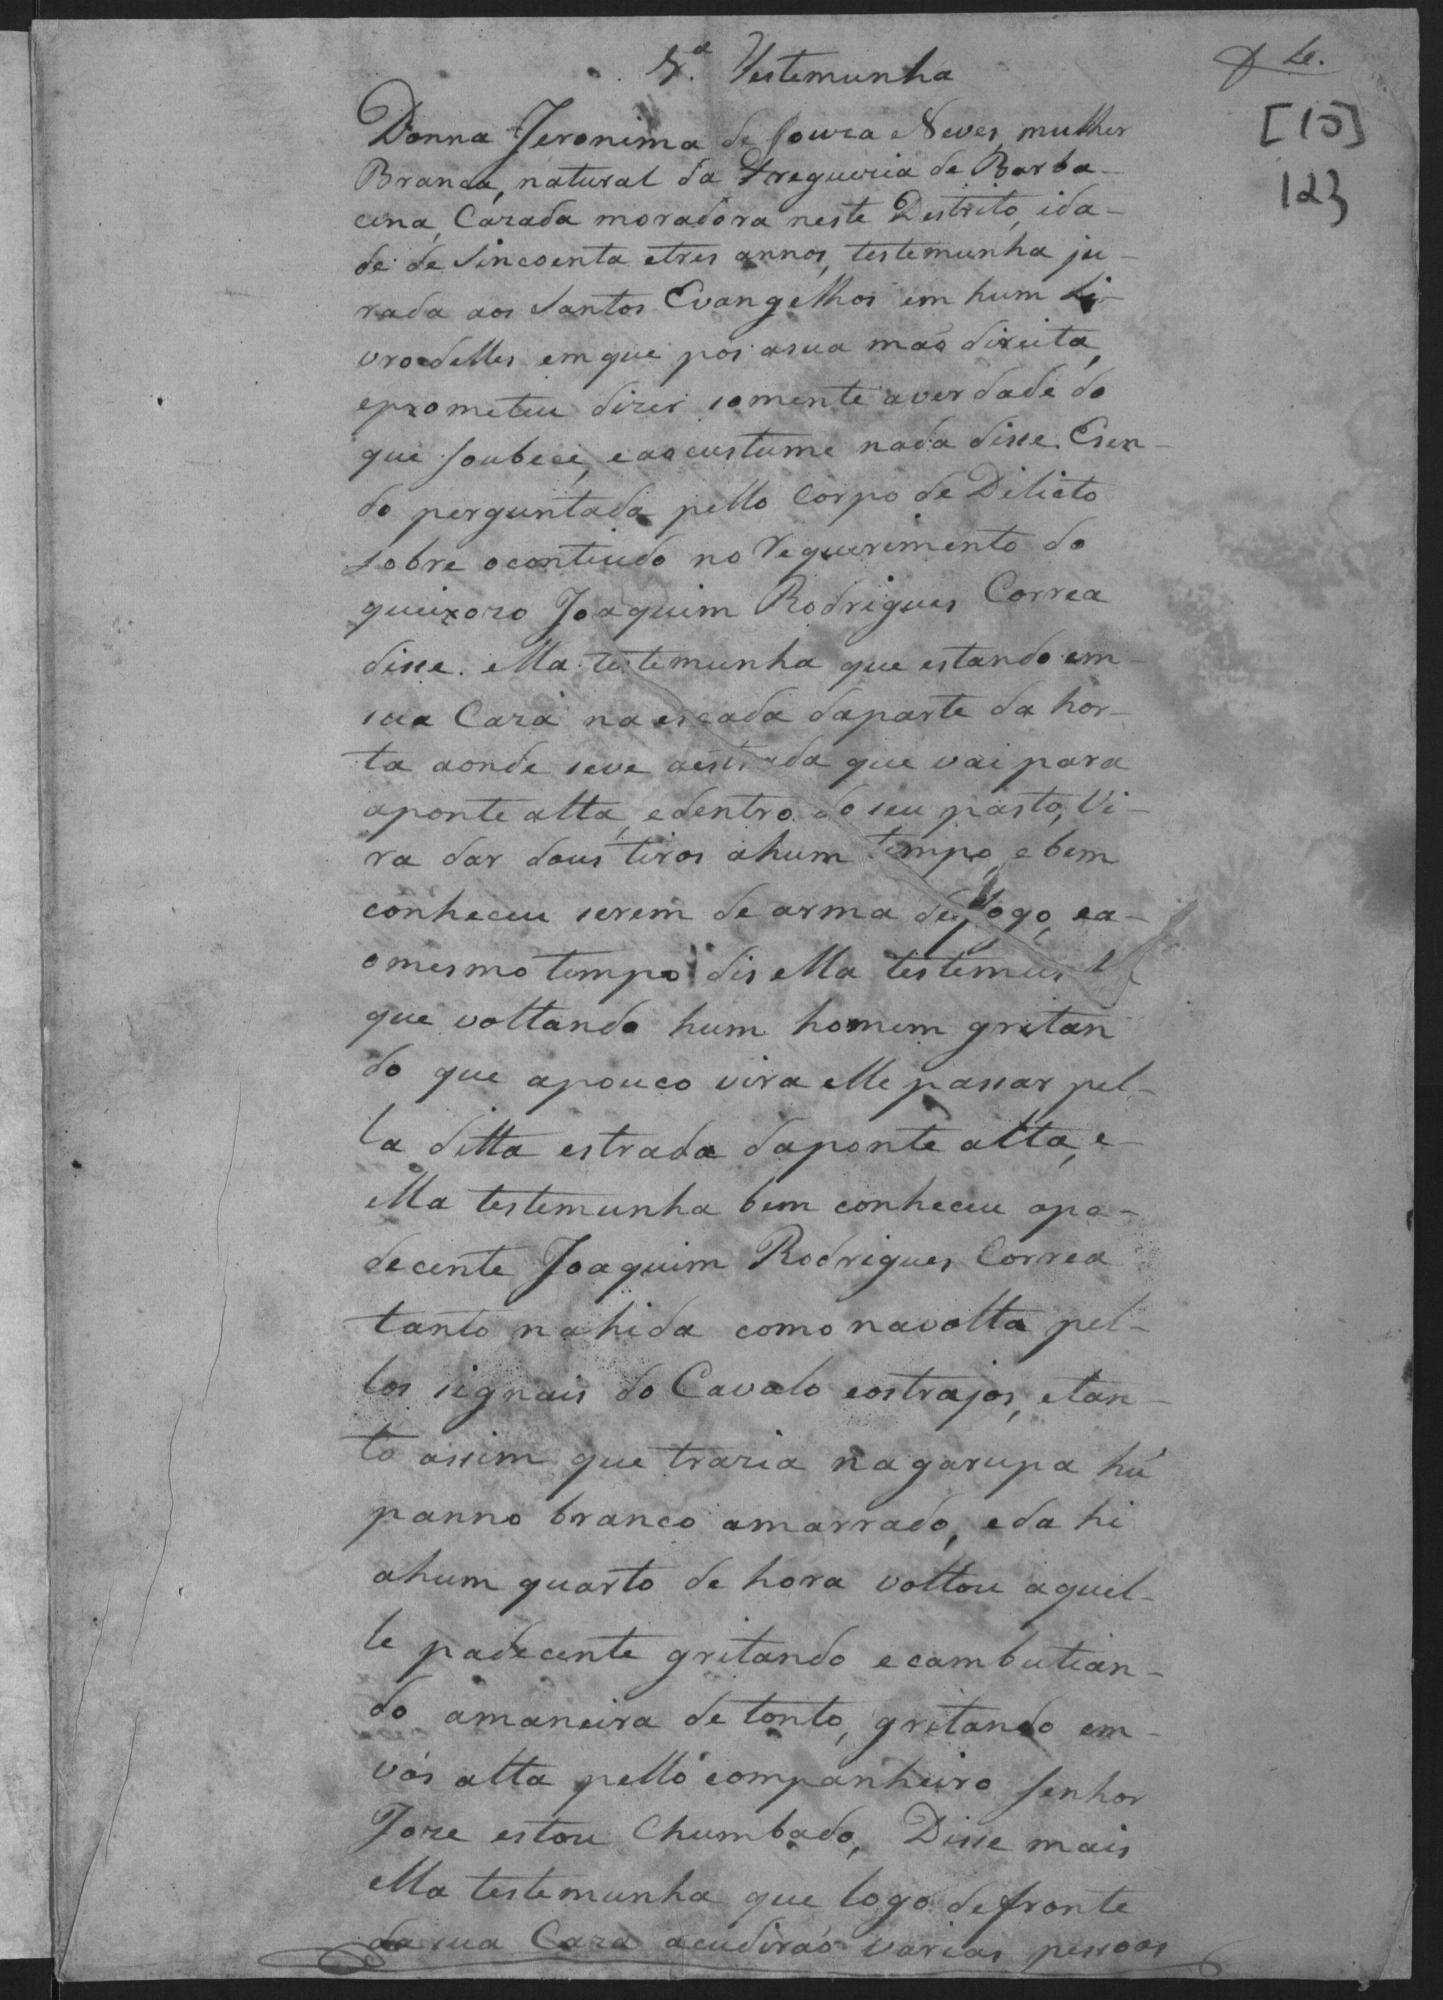 4.ª Testemunha
[10]
123
Donna Jeronima de Souza Neves, mulher
Branca, natural da Freguezia de Barba-
cena, Cazada moradora neste Destrito, ida-
de de Sincoenta etres annos, testemunha ju-
rada aos Santos Evangelhos em hum Li-
vro delles em que pos a sua maõ direita,
eprometeu dizer somente averdade do
que soubece, e ao custume nada disse. Esen-
do perguntada pello Corpo de Delicto
sobre ocontiudo no Requerimento do
queixozo Joaquim Rodrigues Correa
disse. ella testemunha que estando em
sua Caza na escada daparte da hor-
ta aonde seve aestrada que vai para
aponte alta, edentro do seu pasto, Vi-
ra dar dous tiros ahum tempo, e bem
conheceu serem de arma de fogo, ea-
omesmo tempo dis ella
que voltando hum homem gritan
do que apouco vira elle passar pel-
la ditta estrada daponte alta, e-
ella testemunha bem conheceu opa-
decente Joaquim Rodrigues Correa
tanto nahida como navolta pel-
los signais do Cavalo eostrajos, etan-
to assim que trazia nagarupa hú
panno branco amarrado, eda hi
ahum quarto de hora voltou aquel-
le padecente gritando ecambutian-
do amaneira de tonto, gritando em-
vós alta pello companheiro Senhor
Joze estou Chumbado, Disse mais
ella testemunha que logo defronte
da sua Caza acudiraõ varias pessoas